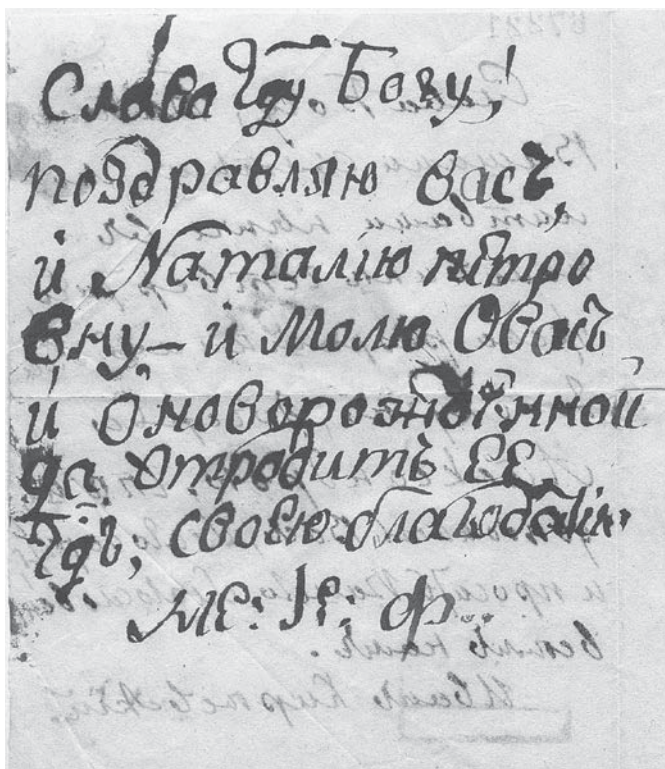 Слава Гду Богу!
поздравляю васъ
й Наталїю пєтро
вну – й молю Овасъ
й ѻноворождєнной
да Отродитъ ЕЕ
Гдь, своєю благодатїю.
МЕ: ІЕ: Ф..